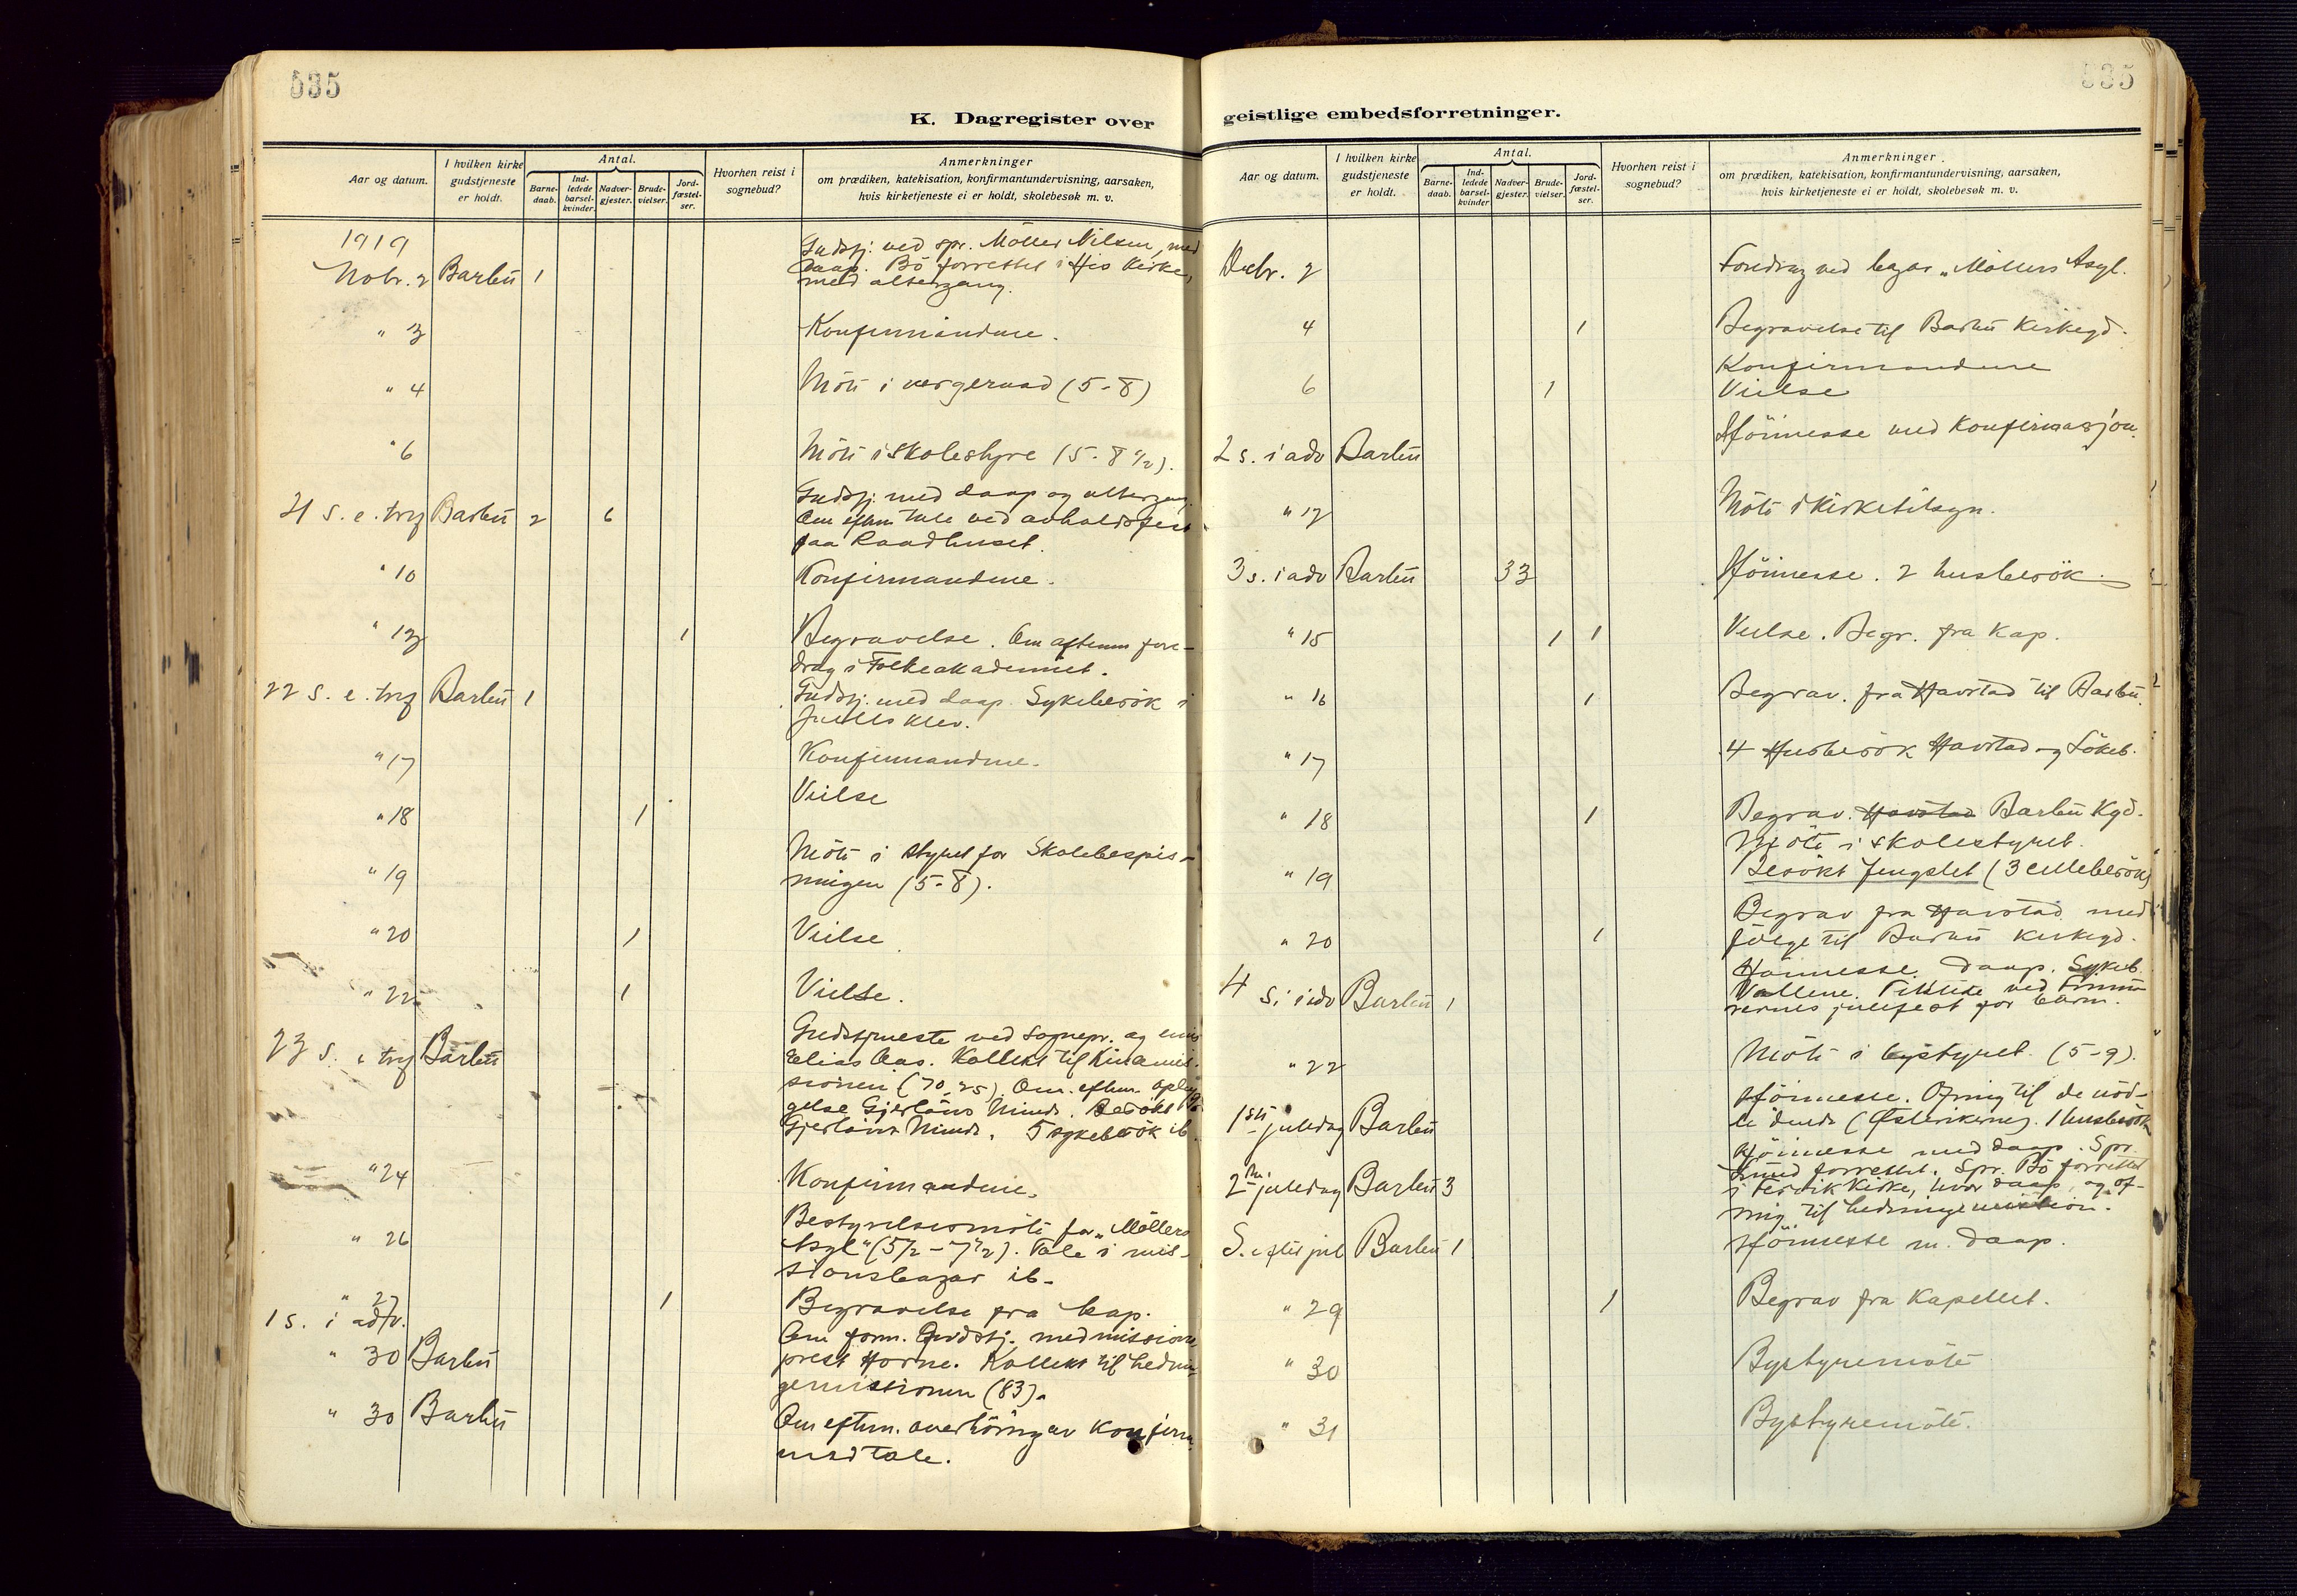 535
K. Dagregister over
Aar og datum.
I hvilken kirke gudstjeneste er holdt.
Antal.
Barne-daab.
Ind-ledede barsel-kvinder.
Nadver-gjester.
Brude-vielser.
Jord-fæstel-ser.
Hvorhen reist i sognebud?
Anmerkninger
om prædiken, katekisation, konfirmantundervisning, aarsaken,
hvis kirketjeneste ei er holdt, skolebesøk m. v.
1919
Nobr. 2 Barbu 1 Gudstj. ved spr. Möller Nilsen, med
daap. Bö forrettet i His Kirke,
med altergang.
" 3 Konfirmandene.
" 4 Möte i vergeraad (5-8)
" 6 Möte i skolestyre (5-8 1/2).
21 s. e. tref Barbu 2 6 Gudstj. med daap og altergang.
Om eftm tale ved avholdsfest
paa Raadhuset.
" 10 Konfirmandene.
" 13 1 Begravelse. Om aftenen fore-
drag i Folkeakademiet.
22 s. e. tref Barbu 1 Gudstj. med daap. Sykebesök i
klev.
" 17 Konfirmandene.
" 18 1 Vielse
" 19 Möte i styret for Skolebespis-
ningen (5-8).
" 20 1 Vielse
" 22 1 Vielse.
23 s. e tref Barbu Gudstjeneste ved sognepr. og
Elias Aas. Kollekt til Kinamis-
sionen (70,25) Om eftm.
gelse Gjerlöws Minde. Besökt
Gjerlöws Minde. 5 sykebesök ib.
" 24 Konfirmandene.
" 26 Bestyrelsesmöte for "Möllers
Asyl" (5 1/2 - 7 1/2). Tale i mis-
sionsbazar ib.
" 27 1 Begravelse fra kap.
1 s. i adv.
" 30 Barbu Om form. Gudstj. med missions
prest Horne. Kollekt til hednin-
gemissionen (83).
" 30 Barbu Om eftm. overhöring av Konfirm
med tale.
535
geistlige embedsforretninger.
Aar og datum.
I hvilken kirke gudstjeneste er holdt.
Antal.
Barne-daab.
Ind-ledede barsel-kvinder
Nadver-gjester.
Brude-vielser.
Jord-fæstel-ser.
Hvorhen reist i sognebud?
Anmerkninger
om prædiken, katekisation, konfirmantundervisning, aarsaken,
hvis kirketjeneste ei er holdt, skolebesøk m. v.
Decbr. 2 Foredrag ved bazar "Möllers Asyl.
4 1 Begravelse til Barbu Kirkegd.
Konfirmandene
6 1 Vielse
2 s. i adv Barbu Höimesse med Konfirmasjon.
" 12 Möte i Kirketilsyn.
3 s. i adv Barbu 33 Höimesse. 2 husbesök.
" 15 1 1 Vielse. Begr. fra Kap.
" 16 1 Begrav. fra Havstad til Barbu.
" 17 4 Husbesök Havstad og Lökeb.
" 18 1 Begrav. Havstad Barbu Kgd.
Möte i skolestyret.
" 19 Besökt fengslet (3 cellebesök)
" 20 1 Begrav fra Havstad med
fölge til Barbu kirkegd.
4 s. i adv Barbu 1 Höimesse. Daap. Sykeb.
Vallene. ved
julefest for barn.
" 22 Möte i bystyret. (5-9).
1ste juledag Barbu Höimesse. Ofring til de nöd-
lidende (Østerikerne). 1 husbesök
2den juledag Barbu 3 Höimesse med daap. Spr.
Lund forrettet. Spr. Bö forrettet
i Kirke, hvor daap, og of-
ring til hedningemission.
S. efter jul Barbu 1 Höimesse m. daap.
" 29 1 Begrav fra Kapellet.
" 30 Bystyremöte
" 31 Bystyremöte.